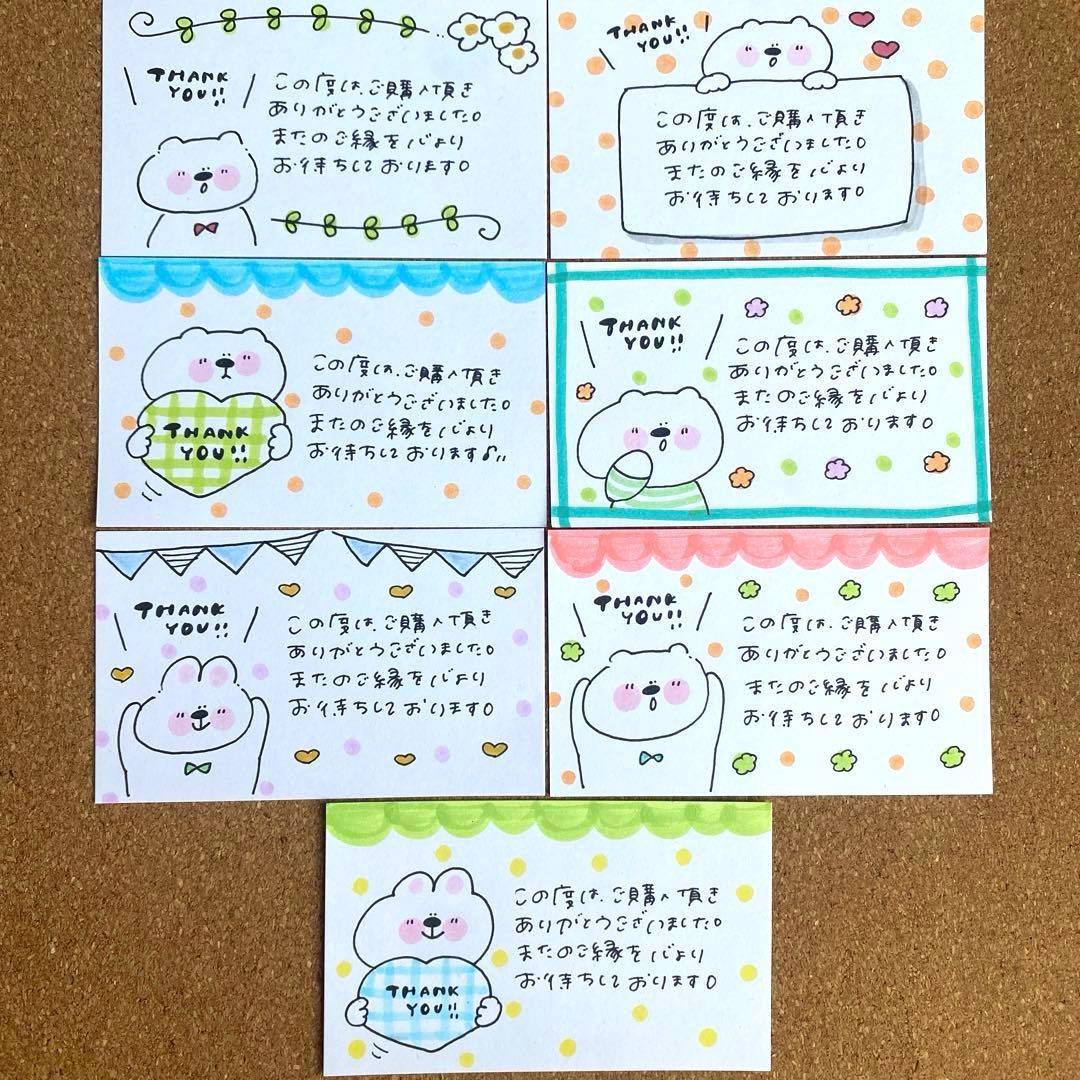 THANK
YOU!!
この度は、ご購入頂き
ありがとうございました。
またのご縁を心より
お待ちしております。
THANK
YOU!!
この度は、ご購入頂き
ありがとうございました。
またのご縁を心より
お待ちしております。
この度は、ご購入頂き
ありがとうございました。
またのご縁を心より
お待ちしております♪
THANK
YOU!!
THANK
YOU!!
この度は、ご購入頂き
ありがとうございました。
またのご縁を心より
お待ちしております。
THANK
YOU!!
この度は、ご購入頂き
ありがとうございました。
またのご縁を心より
お待ちしております。
THANK
YOU!!
この度は、ご購入頂き
ありがとうございました。
またのご縁を心より
お待ちしております。
この度は、ご購入頂き
ありがとうございました。
またのご縁を心より
お待ちしております。
THANK
YOU!!